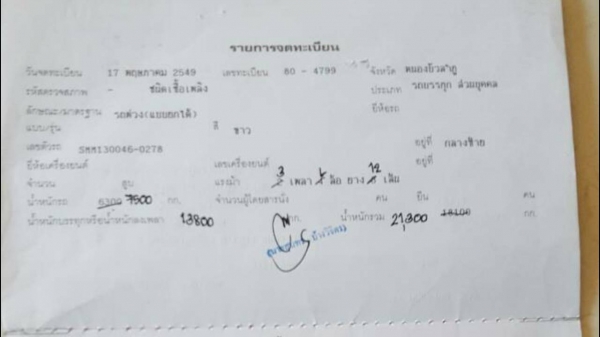 รายการจดทะเบียน
วันจดทะเบียน 17 พฤษภาคม 2549 เลขทะเบียน 80 - 4799 จังหวัด หนองบัวลำภู
รหัสตรวจสภาพ - ชนิดเชื้อเพลิง ประเภท รถบรรทุก ส่วนบุคคล
ลักษณะ/มาตรฐาน รถพ่วง(แบบยกได้) ยี่ห้อรถ
แบบ/รุ่น สี ขาว
เลขตัวรถ SMM130046-0278 อยู่ที่ กลางซ้าย
ยี่ห้อเครื่องยนต์ เลขเครื่องยนต์ อยู่ที่
จำนวน สูบ แรงม้า 3 เพลา ล้อ ยาง 12 เส้น
น้ำหนักรถ 6300 7500 กก. จำนวนผู้โดยสารนั่ง คน ยืน คน
น้ำหนักบรรทุกหรือน้ำหนักลงเพลา 13800 กก. น้ำหนักรวม 21,300 18100 กก.